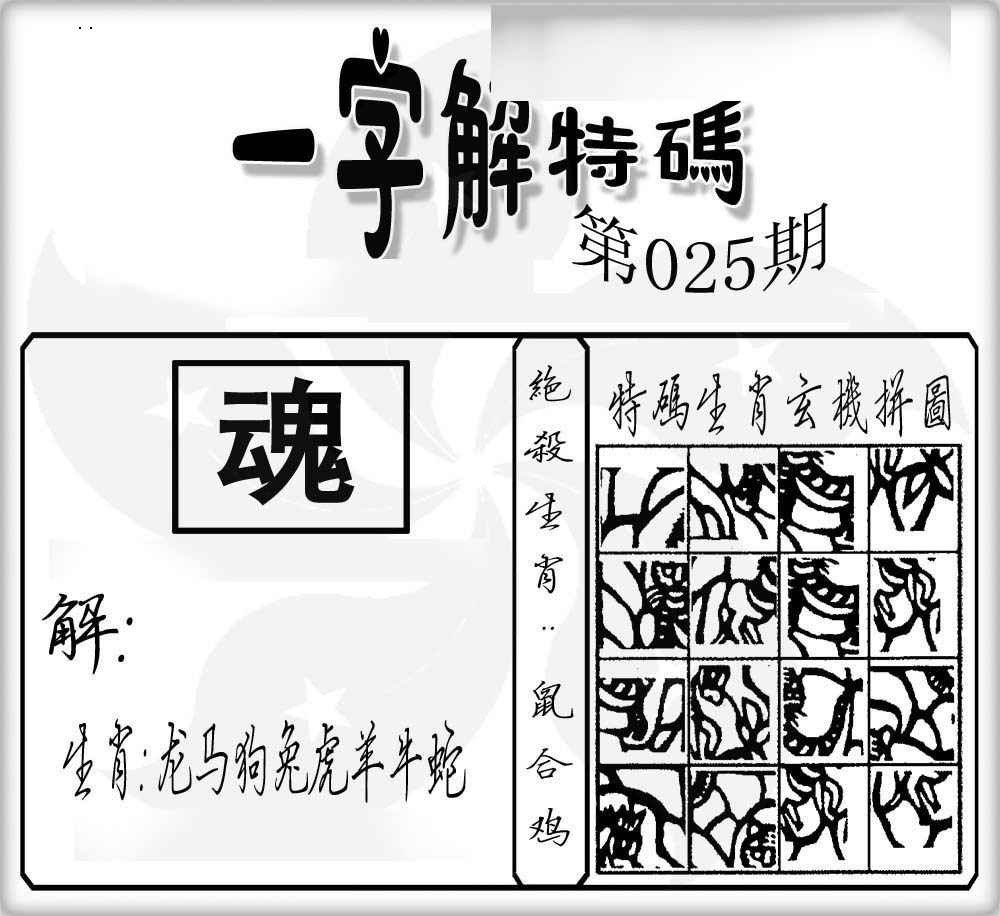 一字解特碼
第025期
魂
解:
生肖:龙马狗兔虎羊牛蛇
絶殺生肖:鼠合鸡
特碼生肖玄機拼圖